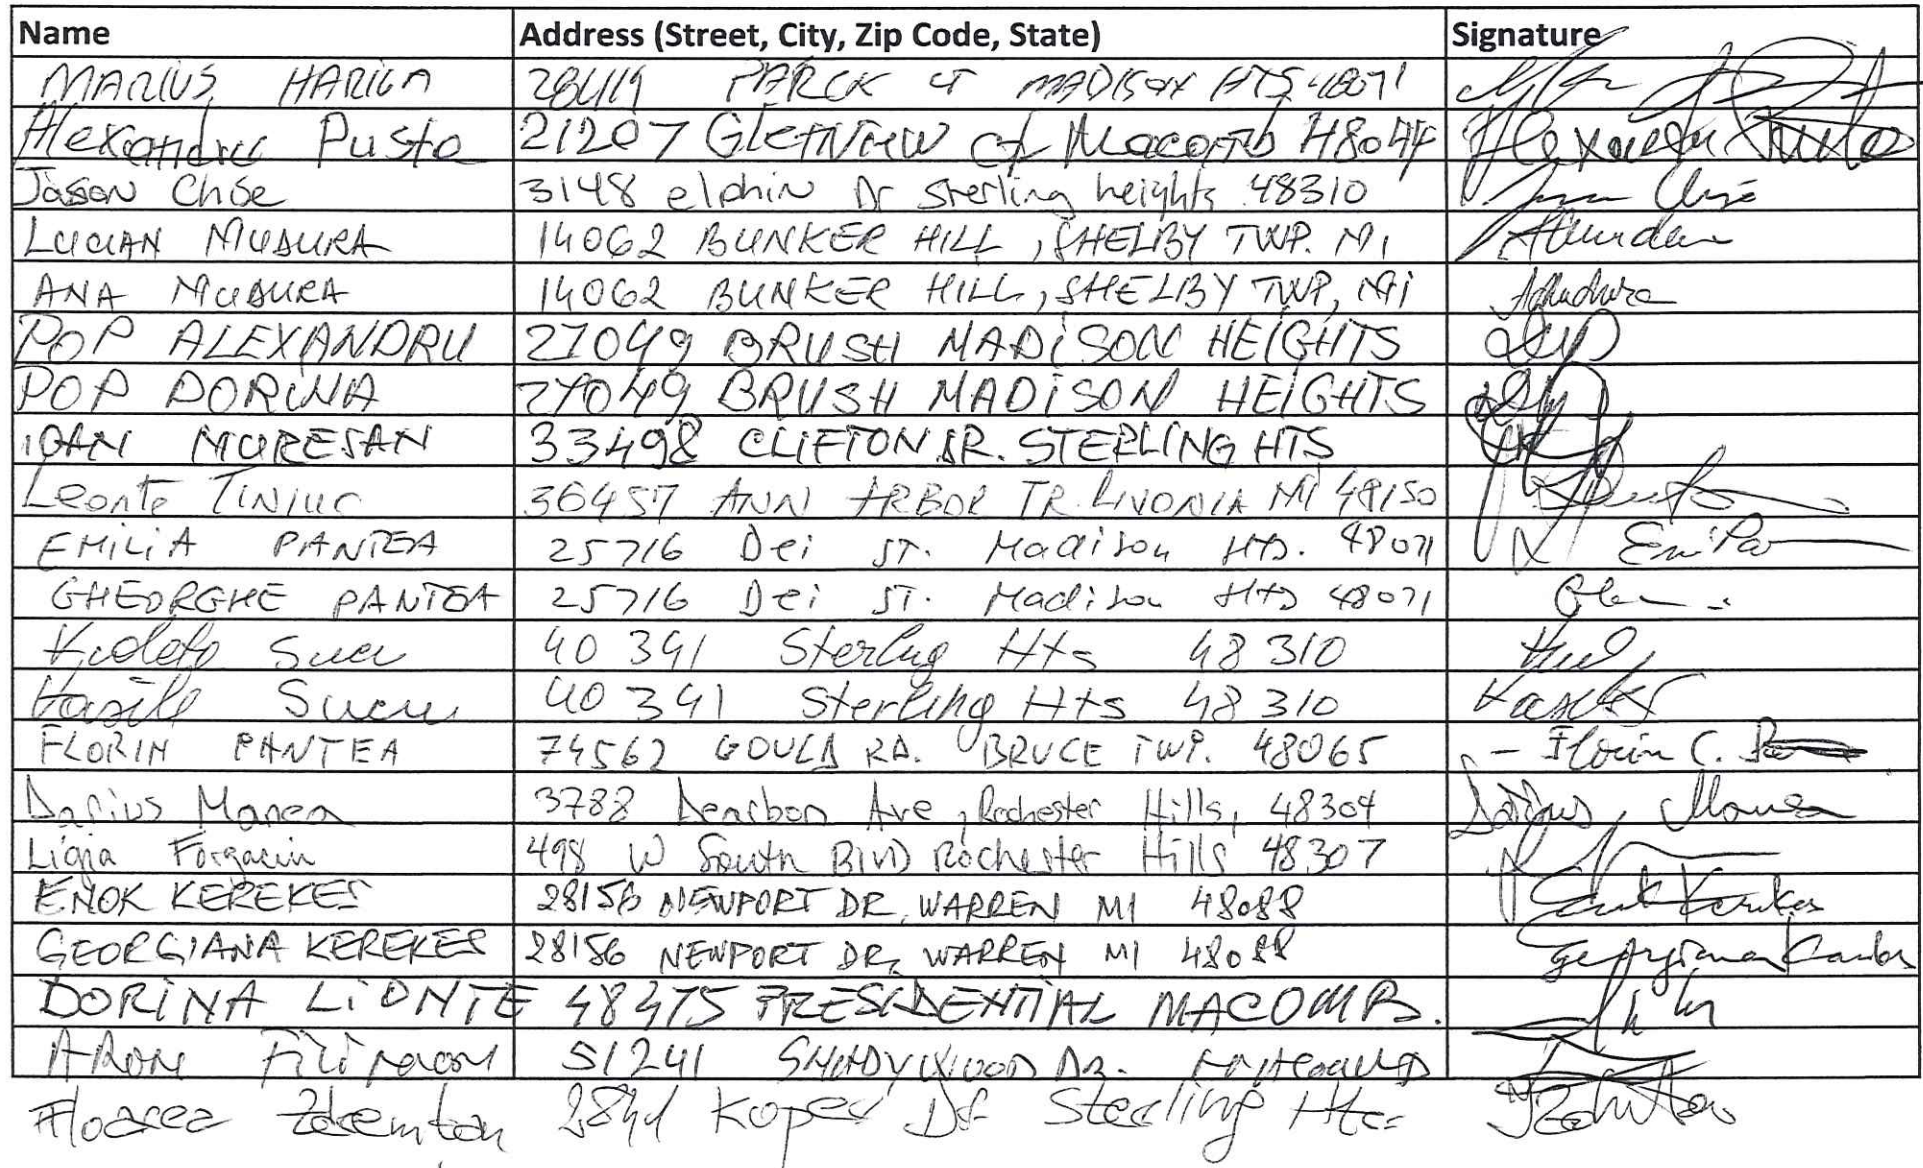 Name Address (Street, City, Zip Code, State) Signature
MARIUS HARICA 28419 PARCK CT MADISON HTS 48071
Alexandru Pusta 21207 Glenview ct Macomb 48044
Jason Chise 3148 elphin Dr sterling heights 48310
LUCIAN MUDURA 14062 BUNKER HILL, SHELBY TWP. MI
ANA MUDURA 14062 BUNKER HILL, SHELBY TWP, MI
POP ALEXANDRU 27049 BRUSH MADISON HEIGHTS
POP DORINA 27049 BRUSH MADISON HEIGHTS
IOAN MURESAN 33498 CLIFTON DR. STERLING HTS
Leonte TINIUC 36457 ANN ARBOR TR. LIVONIA MI 48150
EMILIA PANTEA 25716 Dei ST. Madison HTS. 48071
GHEORGHE PANTEA 25716 Dei ST. Madison HTS 48071
Sucu 40341 Sterling Hts 48310
Vasile Sucu 40341 Sterling Hts 48310
FLORIN PANTEA 74562 GOULD RD. BRUCE TWP. 48065 - Florin C.
Darius Manea 3788 Dearbon Ave, Rochester Hills, 48304 Darius Manea
Ligia Forgaciu 498 W South Blvd Rochester Hills 48307
ENOK KEREKES 28156 NEWPORT DR, WARREN MI 48088 Enok Kerekes
GEORGIANA KEREKES 28156 NEWPORT DR, WARREN MI 48088 Georgiana
DORINA LIONTE 48475 PRESIDENTIAL MACOMB.
ARON Filimon 51241 SHADYWOOD DR.
Floarea 2841 Koper Dr Sterling Hts